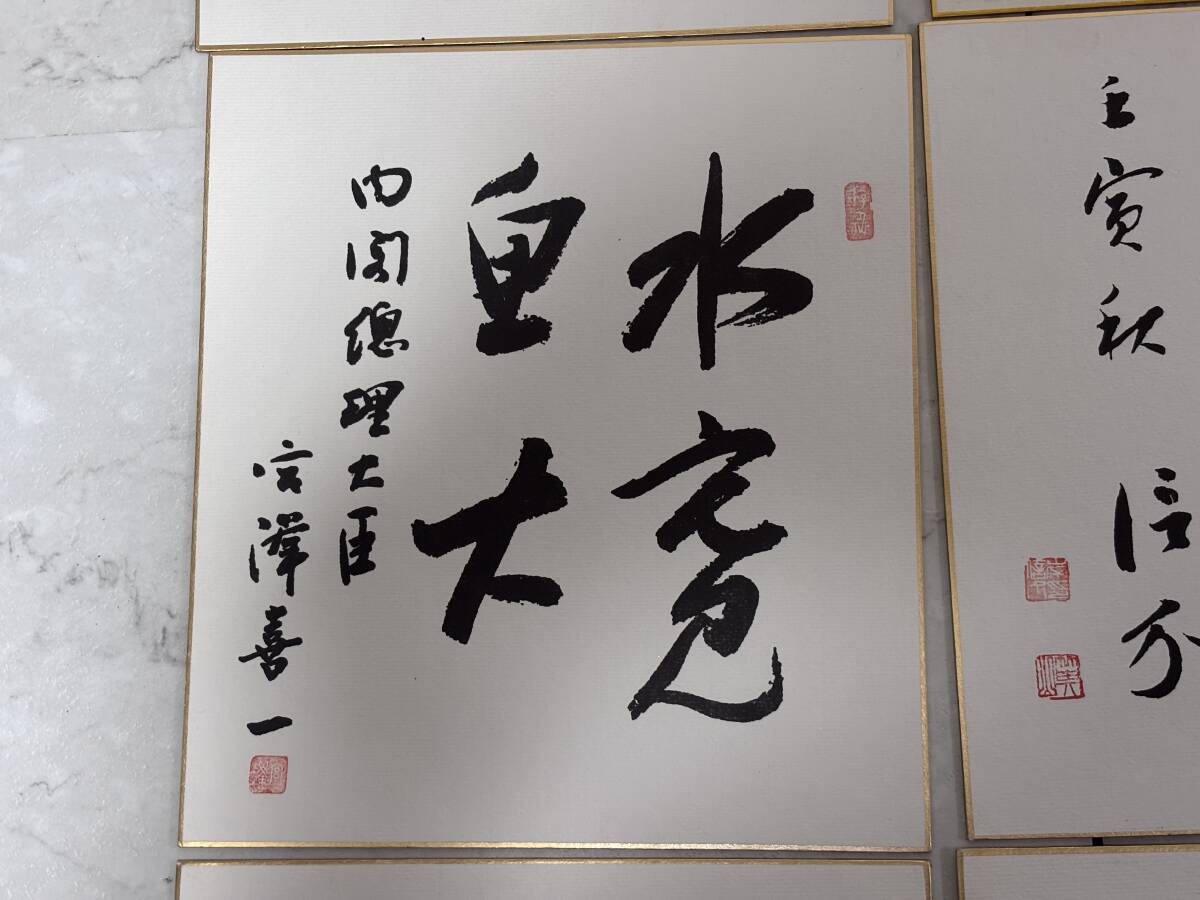 壬寅秋
信介
水寛
魚大
内閣總理大臣
宮澤喜一